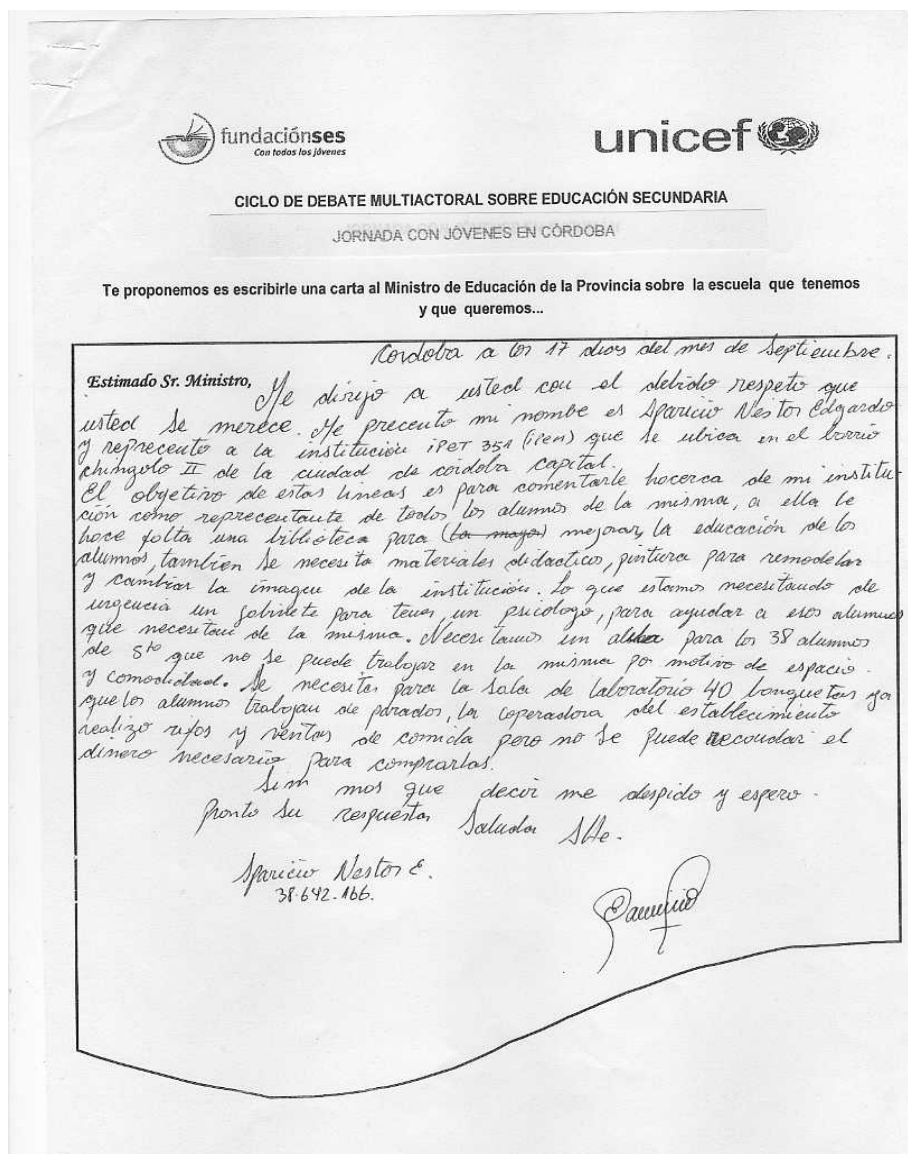 fundaciónses
Con todos los jóvenes
unicef
CICLO DE DEBATE MULTIACTORAL SOBRE EDUCACIÓN SECUNDARIA
JORNADA CON JÓVENES EN CÓRDOBA
Te proponemos es escribirle una carta al Ministro de Educación de la Provincia sobre la escuela que tenemos
y que queremos...
Cordoba a los 17 dias del mes de Septiembre.
Estimado Sr. Ministro,
Me dirijo a usted con el debido respeto que
usted se merece. Me precento mi nombe es Aparicio Nestor Edgardo
y reprecento a la institución iPET 351 (ipem) que se ubica en el barrio
chingolo II de la ciudad de córdoba capital.
El obgetivo de estas lineas es para comentarle hacerca de mi institu-
ción como reprecentante de todos los alumnos de la misma, a ella le
hace falta una biblioteca para (la mayor) mejorar, la educación de los
alumnos, tambien se necesita materiales didacticos, pintura para remodelar
y cambiar la imagen de la institución. Lo que estamos necesitando de
urgencia un gabinete para tener un psicologo, para ayudar a esos alumnos
que necesitan de la misma. Necesitamos un para los 38 alumnos
de 5to que no se puede trabajar en la misma por motivo de espacio
y comodidad. Se necesitan para la sala de laboratorio 40 banquetas ya
que los alumnos trabajan de parados, la coperadora del establecimiento
realizo rifas y ventas de comida pero no se puede recaudar el
dinero necesario para comprarlas.
Sim mas que decir me despido y espero
pronto su respuesta Saluda Atte.
Aparicio Nestor E.
38.642.166.